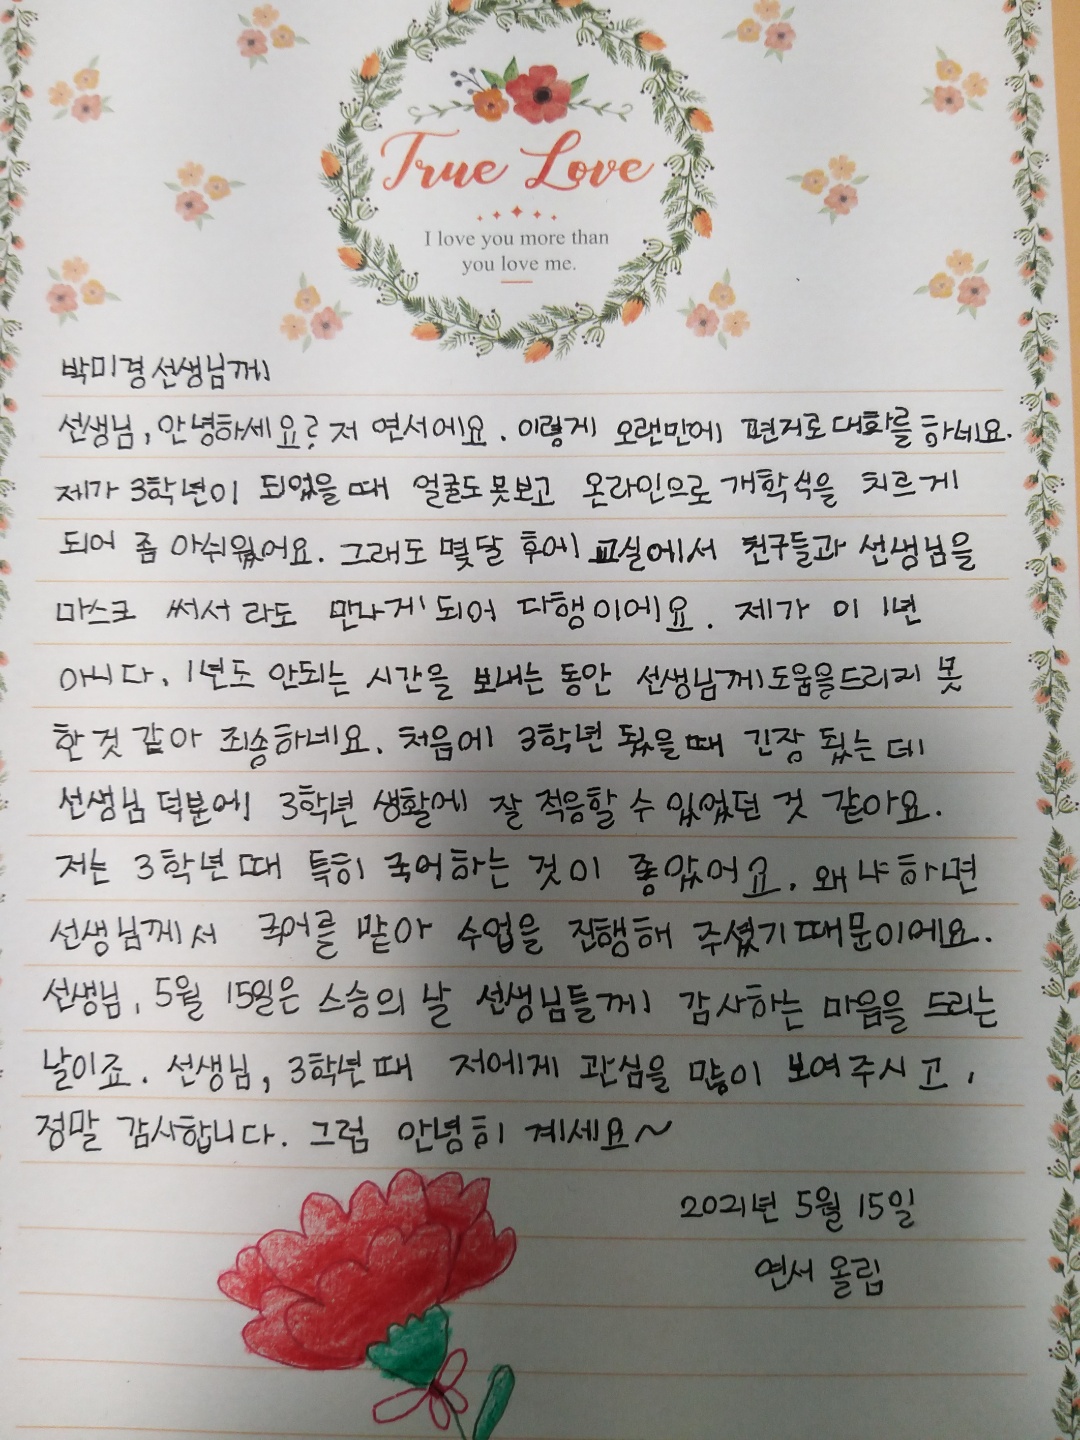 True Love
I love you more than
you love me.
박미경선생님께
선생님, 안녕하세요? 저 연서에요. 이렇게 오랜만에 편지로 대화를 하네요.
제가 3학년이 되었을 때 얼굴도 못보고 온라인으로 개학식을 치르게
되어 좀 아쉬웠어요. 그래도 몇달 후에 교실에서 친구들과 선생님을
마스크 써서 라도 만나게 되어 다행이에요. 제가 이 1년
아니다. 1년도 안되는 시간을 보내는 동안 선생님께 도움을 드리지 못
한 것 같아 죄송하네요. 처음에 3학년 됬을 때 긴장 됬는 데
선생님 덕분에 3학년 생활에 잘 적응할 수 있었던 것 같아요.
저는 3학년 때 특히 국어하는 것이 좋았어요. 왜냐하면
선생님께서 국어를 맡아 수업을 진행해 주셨기 때문이에요.
선생님, 5월 15일은 스승의 날 선생님들께 감사하는 마음을 드리는
날이죠. 선생님, 3학년 때 저에게 관심을 많이 보여주시고,
정말 감사합니다. 그럼 안녕히 계세요~
2021년 5월 15일
연서 올림